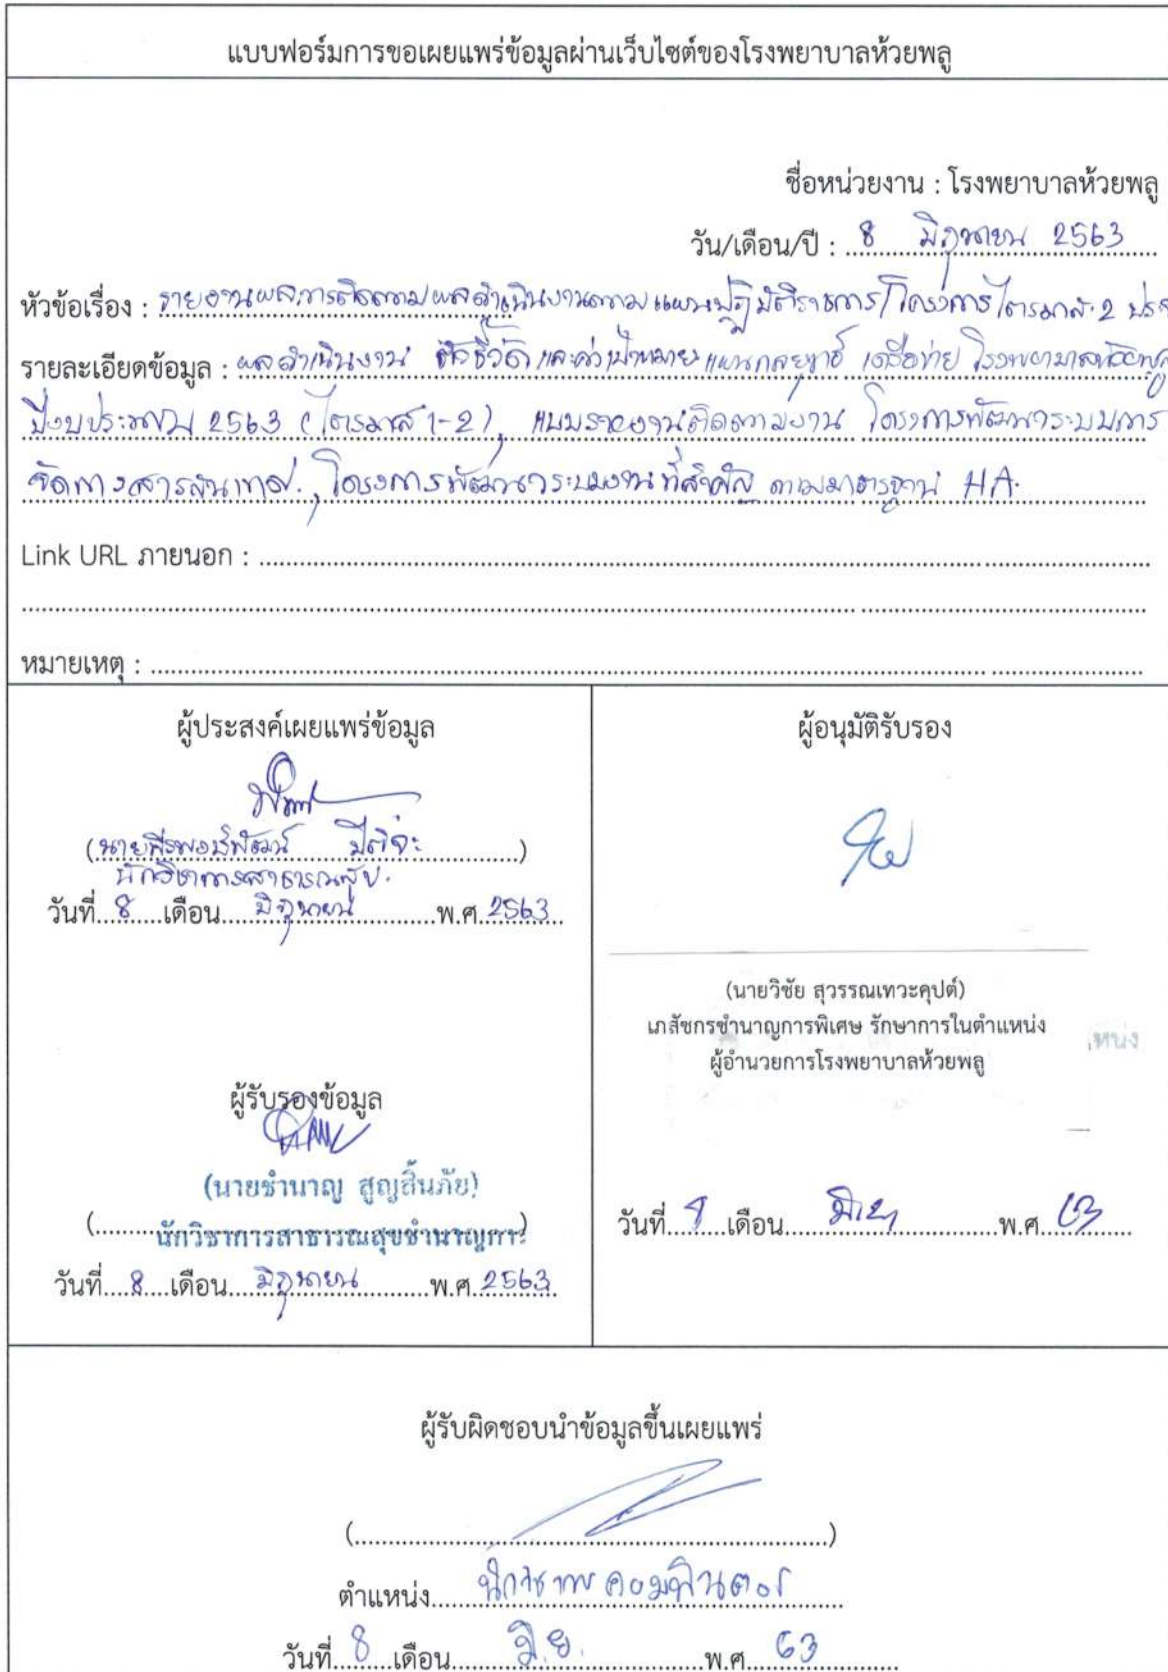 แบบฟอร์มการขอเผยแพร่ข้อมูลผ่านเว็บไซต์ของโรงพยาบาลห้วยพลู
ชื่อหน่วยงาน : โรงพยาบาลห้วยพลู
วัน/เดือน/ปี : 8 มิถุนายน 2563
หัวข้อเรื่อง : รายงานผลการติดตามผลดำเนินงานตามแผนปฏิบัติราชการ/โครงการ ไตรมาส 2
รายละเอียดข้อมูล : ผลดำเนินงาน ตัวชี้วัด และค่าเป้าหมาย แผนกลยุทธ์ เครือข่าย โรงพยาบาลห้วยพลู
ปีงบประมาณ 2563 (ไตรมาส 1-2), แบบรายงานติดตามงาน โครงการพัฒนาระบบการ
จัดการสารสนเทศ, โครงการพัฒนาระบบงานที่สำคัญ ตามมาตรฐาน HA.
Link URL ภายนอก :
หมายเหตุ :
ผู้ประสงค์เผยแพร่ข้อมูล
(นาย )
นักวิชาการสาธารณสุข.
วันที่ 8 เดือน มิถุนายน พ.ศ. 2563
ผู้รับรองข้อมูล
(นายชำนาญ สูญสิ้นภัย)
(นักวิชาการสาธารณสุขชำนาญการ)
วันที่ 8 เดือน มิถุนายน พ.ศ. 2563
ผู้อนุมัติรับรอง
(นายวิชัย สุวรรณเทวะคุปต์)
เภสัชกรชำนาญการพิเศษ รักษาการในตำแหน่ง
ผู้อำนวยการโรงพยาบาลห้วยพลู
วันที่ 8 เดือน พ.ศ. 63
ผู้รับผิดชอบนำข้อมูลขึ้นเผยแพร่
()
ตำแหน่ง นักวิชาการคอมพิวเตอร์
วันที่ 8 เดือน มิ.ย. พ.ศ. 63